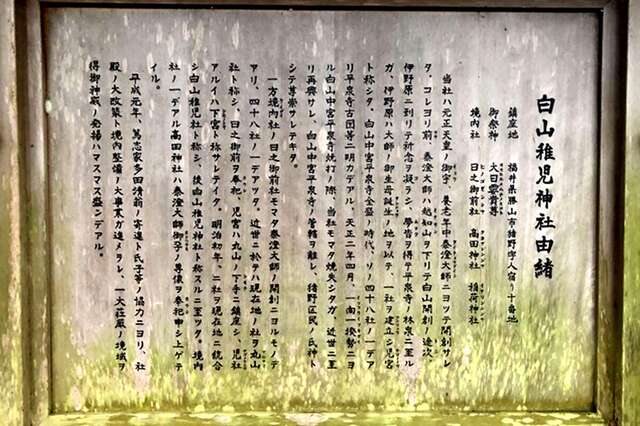 白山稚児神社由緒
鎮座地 福井県勝山市猪野字人宿り十番地
御祭神 大日孁貴尊
境内社 日之御前社 高田神社 稲荷神社
当社ハ元正天皇ノ御宇、養老年中泰澄大師ニヨツテ開創サレ
タ。コレヨリ前、泰澄大師ハ越知山ヲ下リテ白山開創ノ途次、
伊野原ニ到リテ祈念ヲ凝ラシ、夢告ヲ得テ平泉寺ノ林泉ニ至ル
ガ、伊野原ハ大師ノ御生母誕生ノ地ヲ以テ、一社ヲ建立シ児宮
ト称シタ。白山中宮平泉寺全盛ノ時代、ソノ四十八社ノ一デア
リ平泉寺古図等ニ明カデアル。天正二年四月、一向一揆勢ニヨ
ル白山中宮平泉寺焼打ノ際、当社モマタ焼失シタガ、近世ニ至
リ再興サレ、白山中宮平泉寺ノ管轄ヲ離レ、猪野区民ノ氏神ト
シテ尊崇サレテキタ。
一方境内社ノ日之御前社モマタ泰澄大師ノ開創ニヨルモノデ
アリ、四十八社ノ一デアツタ。近世ニ於テハ現在地ノ社ヲ丸山
社ト称シ、日之御前ヲ奉祀、児宮ハ丸山ノ下手ニ鎮座シ、児社
アルイハ下宮ト称サレテイタ。明治初年、二社ヲ現在地ニ統合
シ白山稚児社ト称シ、後白山稚児神社ト称スルニ至ツタ。境内
社ノ一デアル高田神社ハ泰澄大師御子ノ尊像ヲ奉祀申シ上ゲテ
イル。
平成元年、篤志家多田清前ノ寄進ト氏子等ノ協力ニヨリ、社
殿ノ大改築ト境内整備ノ大事業ガ進メラレ、一大荘厳ノ境域ヲ
得御神威ノ発揚ハマスマス盛ンデアル。